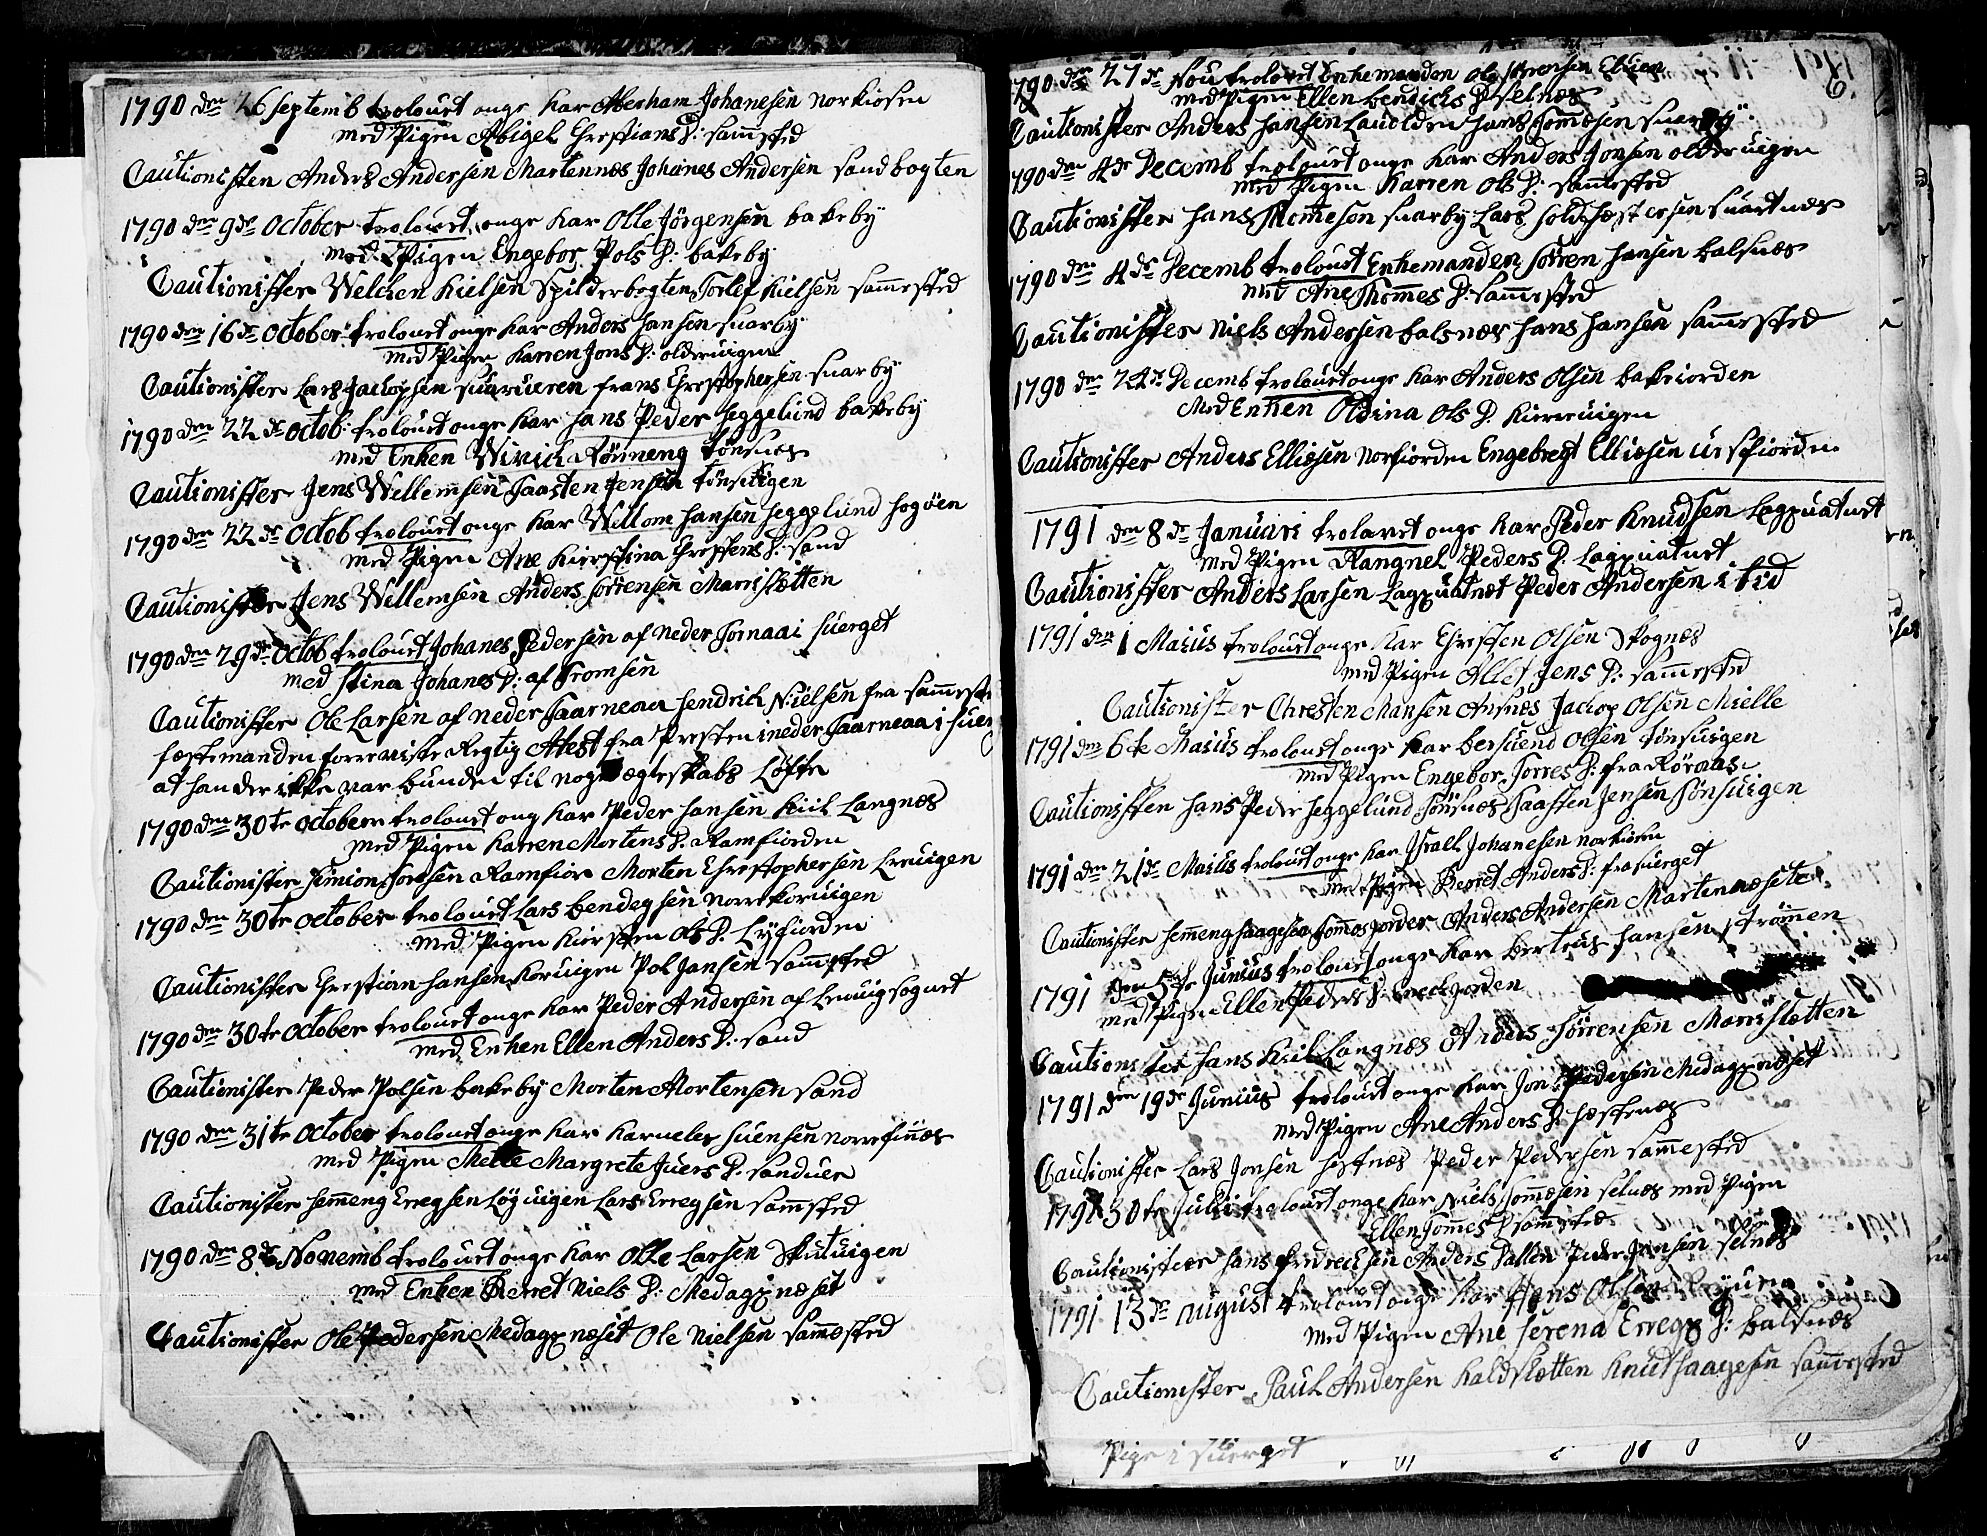 1790 den 26 Septemb trolouet onge Kar Aberham Johanesen Norkiosen
med Pigen Abigel Chrestians D: sammsted
Cautionisten Anders Andersen Martennæs Johanes Andersen Sandbogten
1790 den 9de October trolouet onge Kar Olle Jörgensen bakeby
med Pigen Engebor Pols D: bakeby
Cautionister Welchen Kielsen Spilderbogten Torlef Kielsen sammested
1790 den 16de October trolouet onge Kar Anders Hansen Snarby
med Pigen Karren Jons D: olderuigen
Cautionister Lars Jackopsen Frans Chrestophersen Snarby
1790 den 22de Octob: trolouet onge Kar Hans Peder Heggelund bakeby
med Enken Wivich Rönneng Tönsnes
Cautionister Jens Wellemsen Taarsten Jensen Tönsuigen
1790 den 22de Octob trolouet onge Kar Willom Hansen Heggelund Sogöen
med Pigen Ane Kierstina Chrestens D: Sand
Cautionister Jens Wellemsen Anders Sörrensen Marrisletten
1790 den 29de Octob trolouet Johanes Pedersen af Neder Tornaa i Suerget
med Stina Johanes D: af Tromsen
Cautionister Ole Larsen af Neder Taarneaa Hendrich Nielsen fra sammeste
festemanden forreviste Regtig Atest fra Presten i neder Taarneaa i Suer
at han der ikke var bunden til noget ægteskabs Løfte
1790 den 30te October trolouet ong Kar Peder Hansen Kiil Langnæs
med Pigen Karren Mortens D. Ramfiorden
Cautionister Simion Ramfior Morten Chrestophersen Leruigen
1790 den 30te October trolouet Lars Bendegsen Norrekoruigen
med Pigen Kiersten Ols D. Lyfiorden
Cautionister Chrestian Hansen Koruigen Pol Jansen sammsted
1790 den 30te October trolouet onge Kar Peder Andersen af
med Enken Ellen Anders D: Sand
Cautionister Peder Polsen bakeby Morten Mortensen Sand
1790 den 31te October trolouet onge Kar Karneles Suensen
med Pigen Mette Margrete Juers D. Sanduer
Cautionister Hemmeng Erregsen Löguigen Lars Erregsen sammsted
1790 den 8de Novemb trolouet onge Kar Olle Larsen Skutuigen
med Enken Berret Niels D: Medagxnæset
Cautionister Ole Pedersen Medagxnæset Ole Nielsen sammested
6.
1790 den 27de Nov trolouet Enkemanden Ole Sörensen
med Pigen Ellen Bendicks D Selnæs
Cautionister Anders Hansen Hans Tomesen Snarby
1790 den 4de Decemb trolouet onge Kar Anders Jonsen olderuigen
med Pigen Karren Ols D: sammested
Cautionister Hans Thomeson Snarby Lars Suartnæs
1790 den 4de Decemb trolouet Enkemanden Sörren Hansen Balsnæs
med Ane Thommes D: sammested
Cautionister Niels Andersen Balsnæs Hans Hansen sammested
1790 den 24de Decemb trolouet onge Kar Anders Olsen bakeiorden
med Enken Oldina Ols D. Kierreuigen
Cautionister Anders Elliesen Norfiorden Engebregt Elliesen
1791 den 8de Januari trolavet onge Kar Peder Knudsen Lagxuatnet
med Pigen Rangnel Peders D. Lagxuatnet
Cautionister Anders Larsen Lagxuatnet Peder Andersen i tid
1791 den 1 Maius trolouet onge Kar Chresten Olsen Skognæs
med Pigen Allet Jens D: sammested
Cautionister Chresten Hansen Ansnæs Jackop Olsen Mielle
1791 den 6te Maius trolouet onge Kar Bersuend Olsen Tönsuigen
med Pigen Engebor Torres D: fra Röraas
Cautionisten Hans Peder Heggelund Tönsnæs Taasten Jensen Tönsuigen
1791 den 21de Maius trolouet onge Kar Israel Johanesen Norkiosen
med Pigen Berret Anders D: fra Suerget
Cautionister Hemmeng Haagesen Anders Andersen Martennæset
1791 den 5te Junius trolouet onge Kar Berteus Hansen Strömmen
med Pigen Ellen Peders D:
Cautionister Hans Kiil Langnæs Anders Sörensen Marrisletten
1791 den 19de Junius trolouet onge Kar Jon Pedersen Medagxnæset
med Pigen Ane Anders D: Hestenæs
Cautionister Lars Jonsen Hestnæs Peder Pedersen sammested
1791 30te Julii trolouet onge Kar Niels Tommesen Selnæs med Pigen
Ellen Tomes D sammsted
Cautionister Hans Fredrecksen Anders Pallen Peder Jansen Selnæs
1791 13de August trolouet onge Kar Hans Olsen
med Pigen Ane Serena Erregx D: Balsnæs
Cautionister Paul Andersen Kaldsletten Knud Haagesen sammested
Pige i Suerget